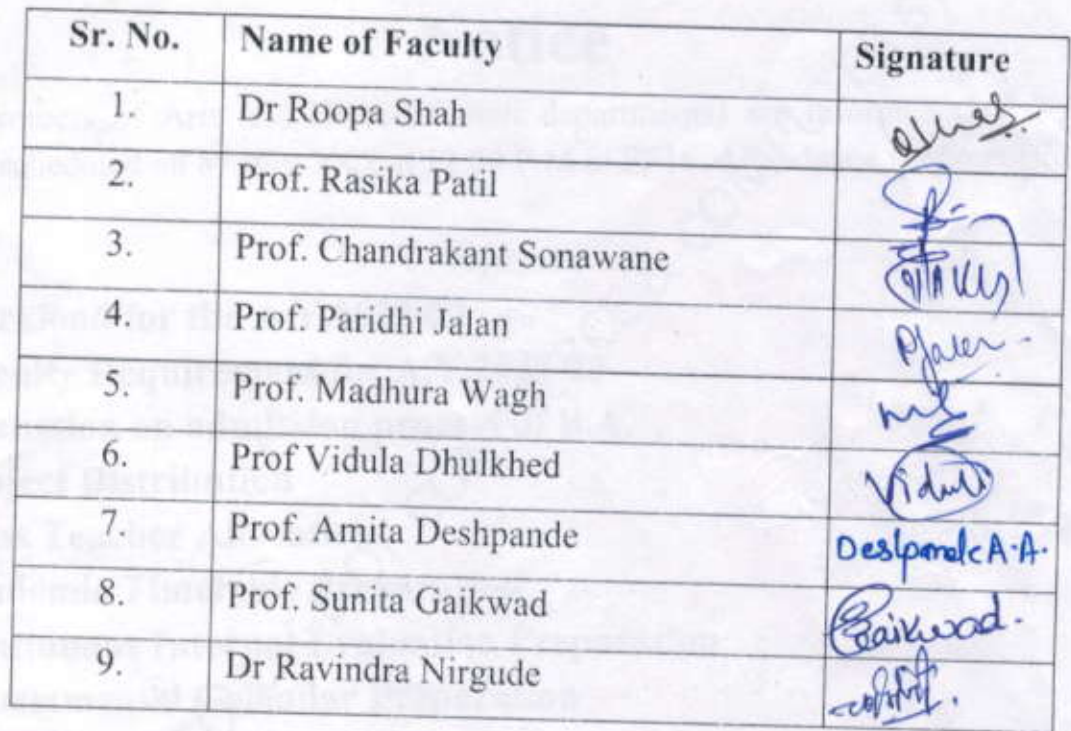 Sr. No. Name of Faculty Signature
1. Dr Roopa Shah
2. Prof. Rasika Patil
3. Prof. Chandrakant Sonawane
4. Prof. Paridhi Jalan PJalan.
5. Prof. Madhura Wagh
6. Prof Vidula Dhulkhed Vidula
7. Prof. Amita Deshpande Deshpande A.A.
8. Prof. Sunita Gaikwad Gaikwad.
9. Dr Ravindra Nirgude